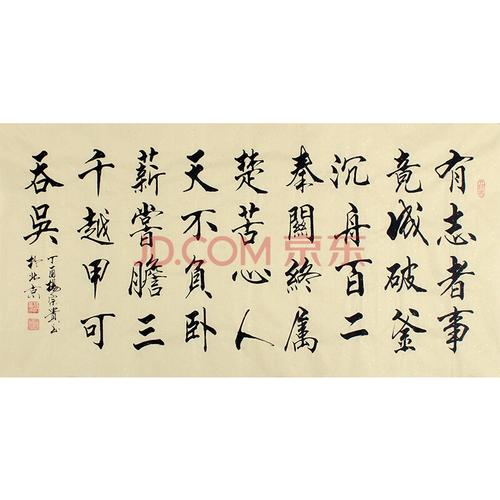 有志者事
竟成破釜
沉舟百二
秦關終属
楚苦心人
天不負卧
薪嘗膽三
千越甲可
吞吳
丁酉楊宗貴书
於北京
JD.COM 京东